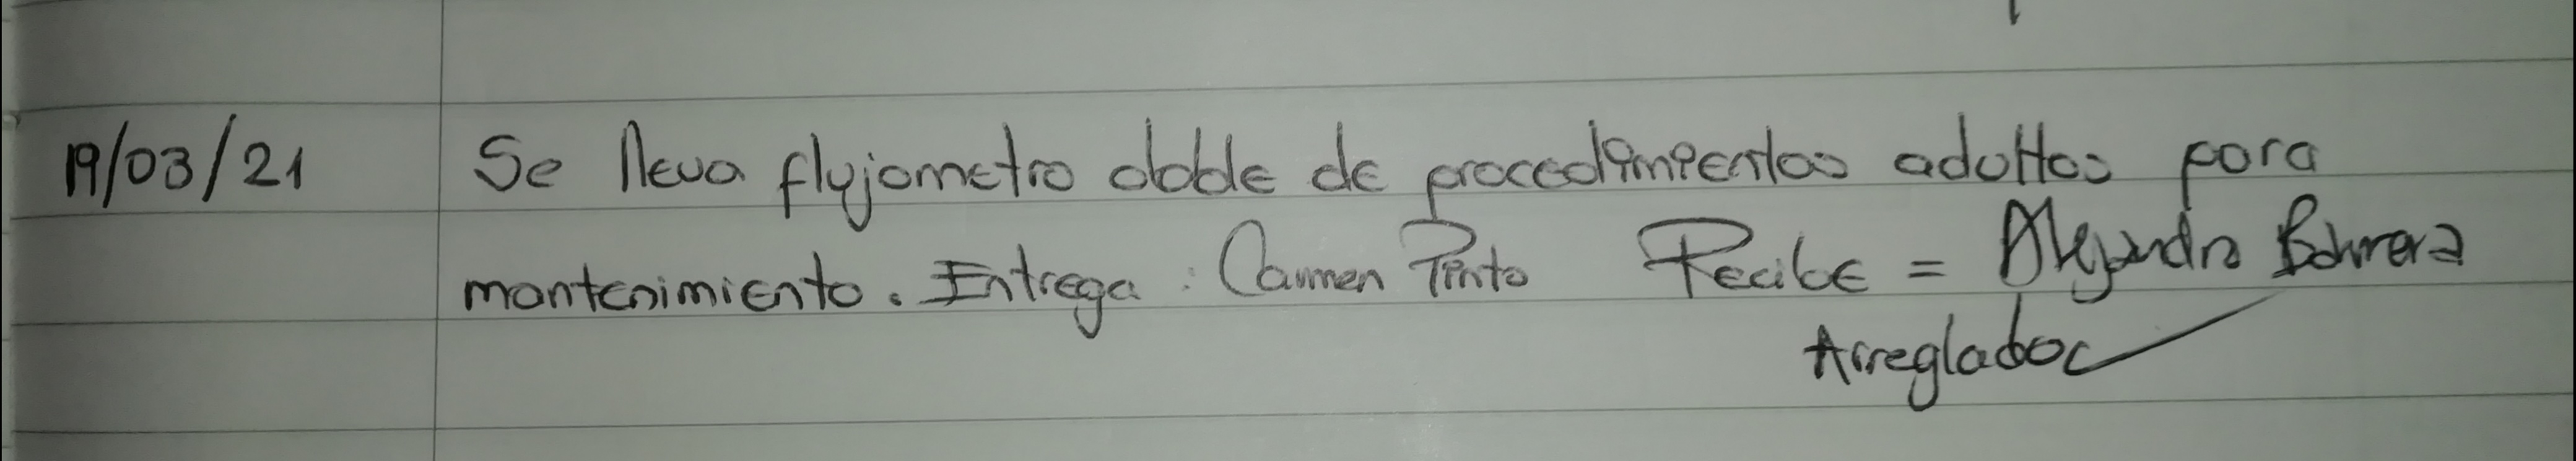 19/03/21 Se lleva flujometro doble de procedimientos adultos para
mantenimiento. Entrega: Carmen Pinto Recibe = Alejandro Barrera
Arreglado